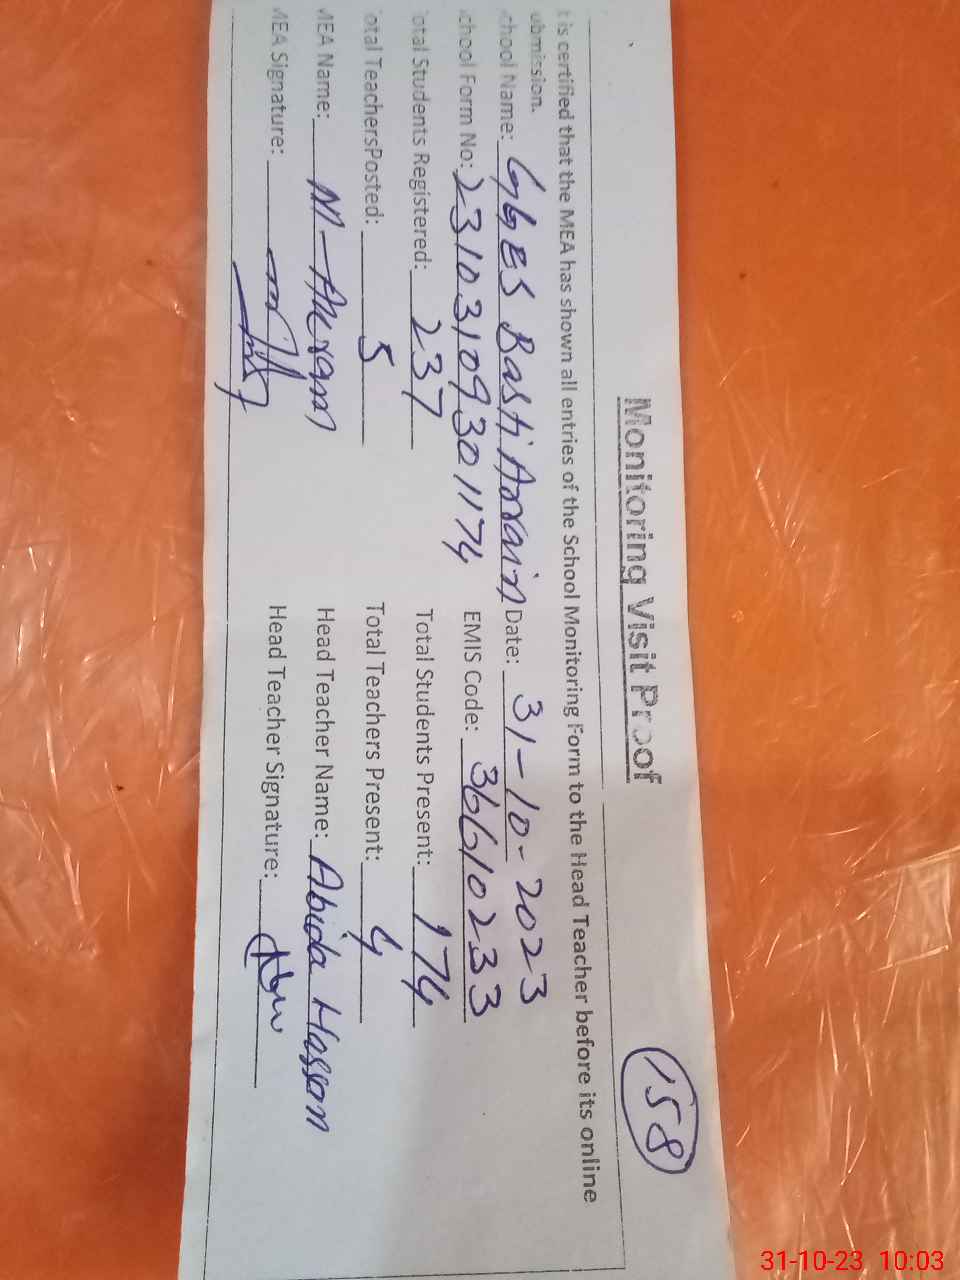 158
Monitoring Visit Proof
t is certified that the MEA has shown all entries of the School Monitoring Form to the Head Teacher before its online
ubmission.
chool Name: GGES Basti Arrain Date: 31-10-2023
chool Form No: 23103109301174 EMIS Code: 36610233
otal Students Registered: 237 Total Students Present: 174
otal TeachersPosted: 5 Total Teachers Present: 4
MEA Name: M-Akram Head Teacher Name: Abida Hassan
MEA Signature: Head Teacher Signature:
31-10-23 10:03